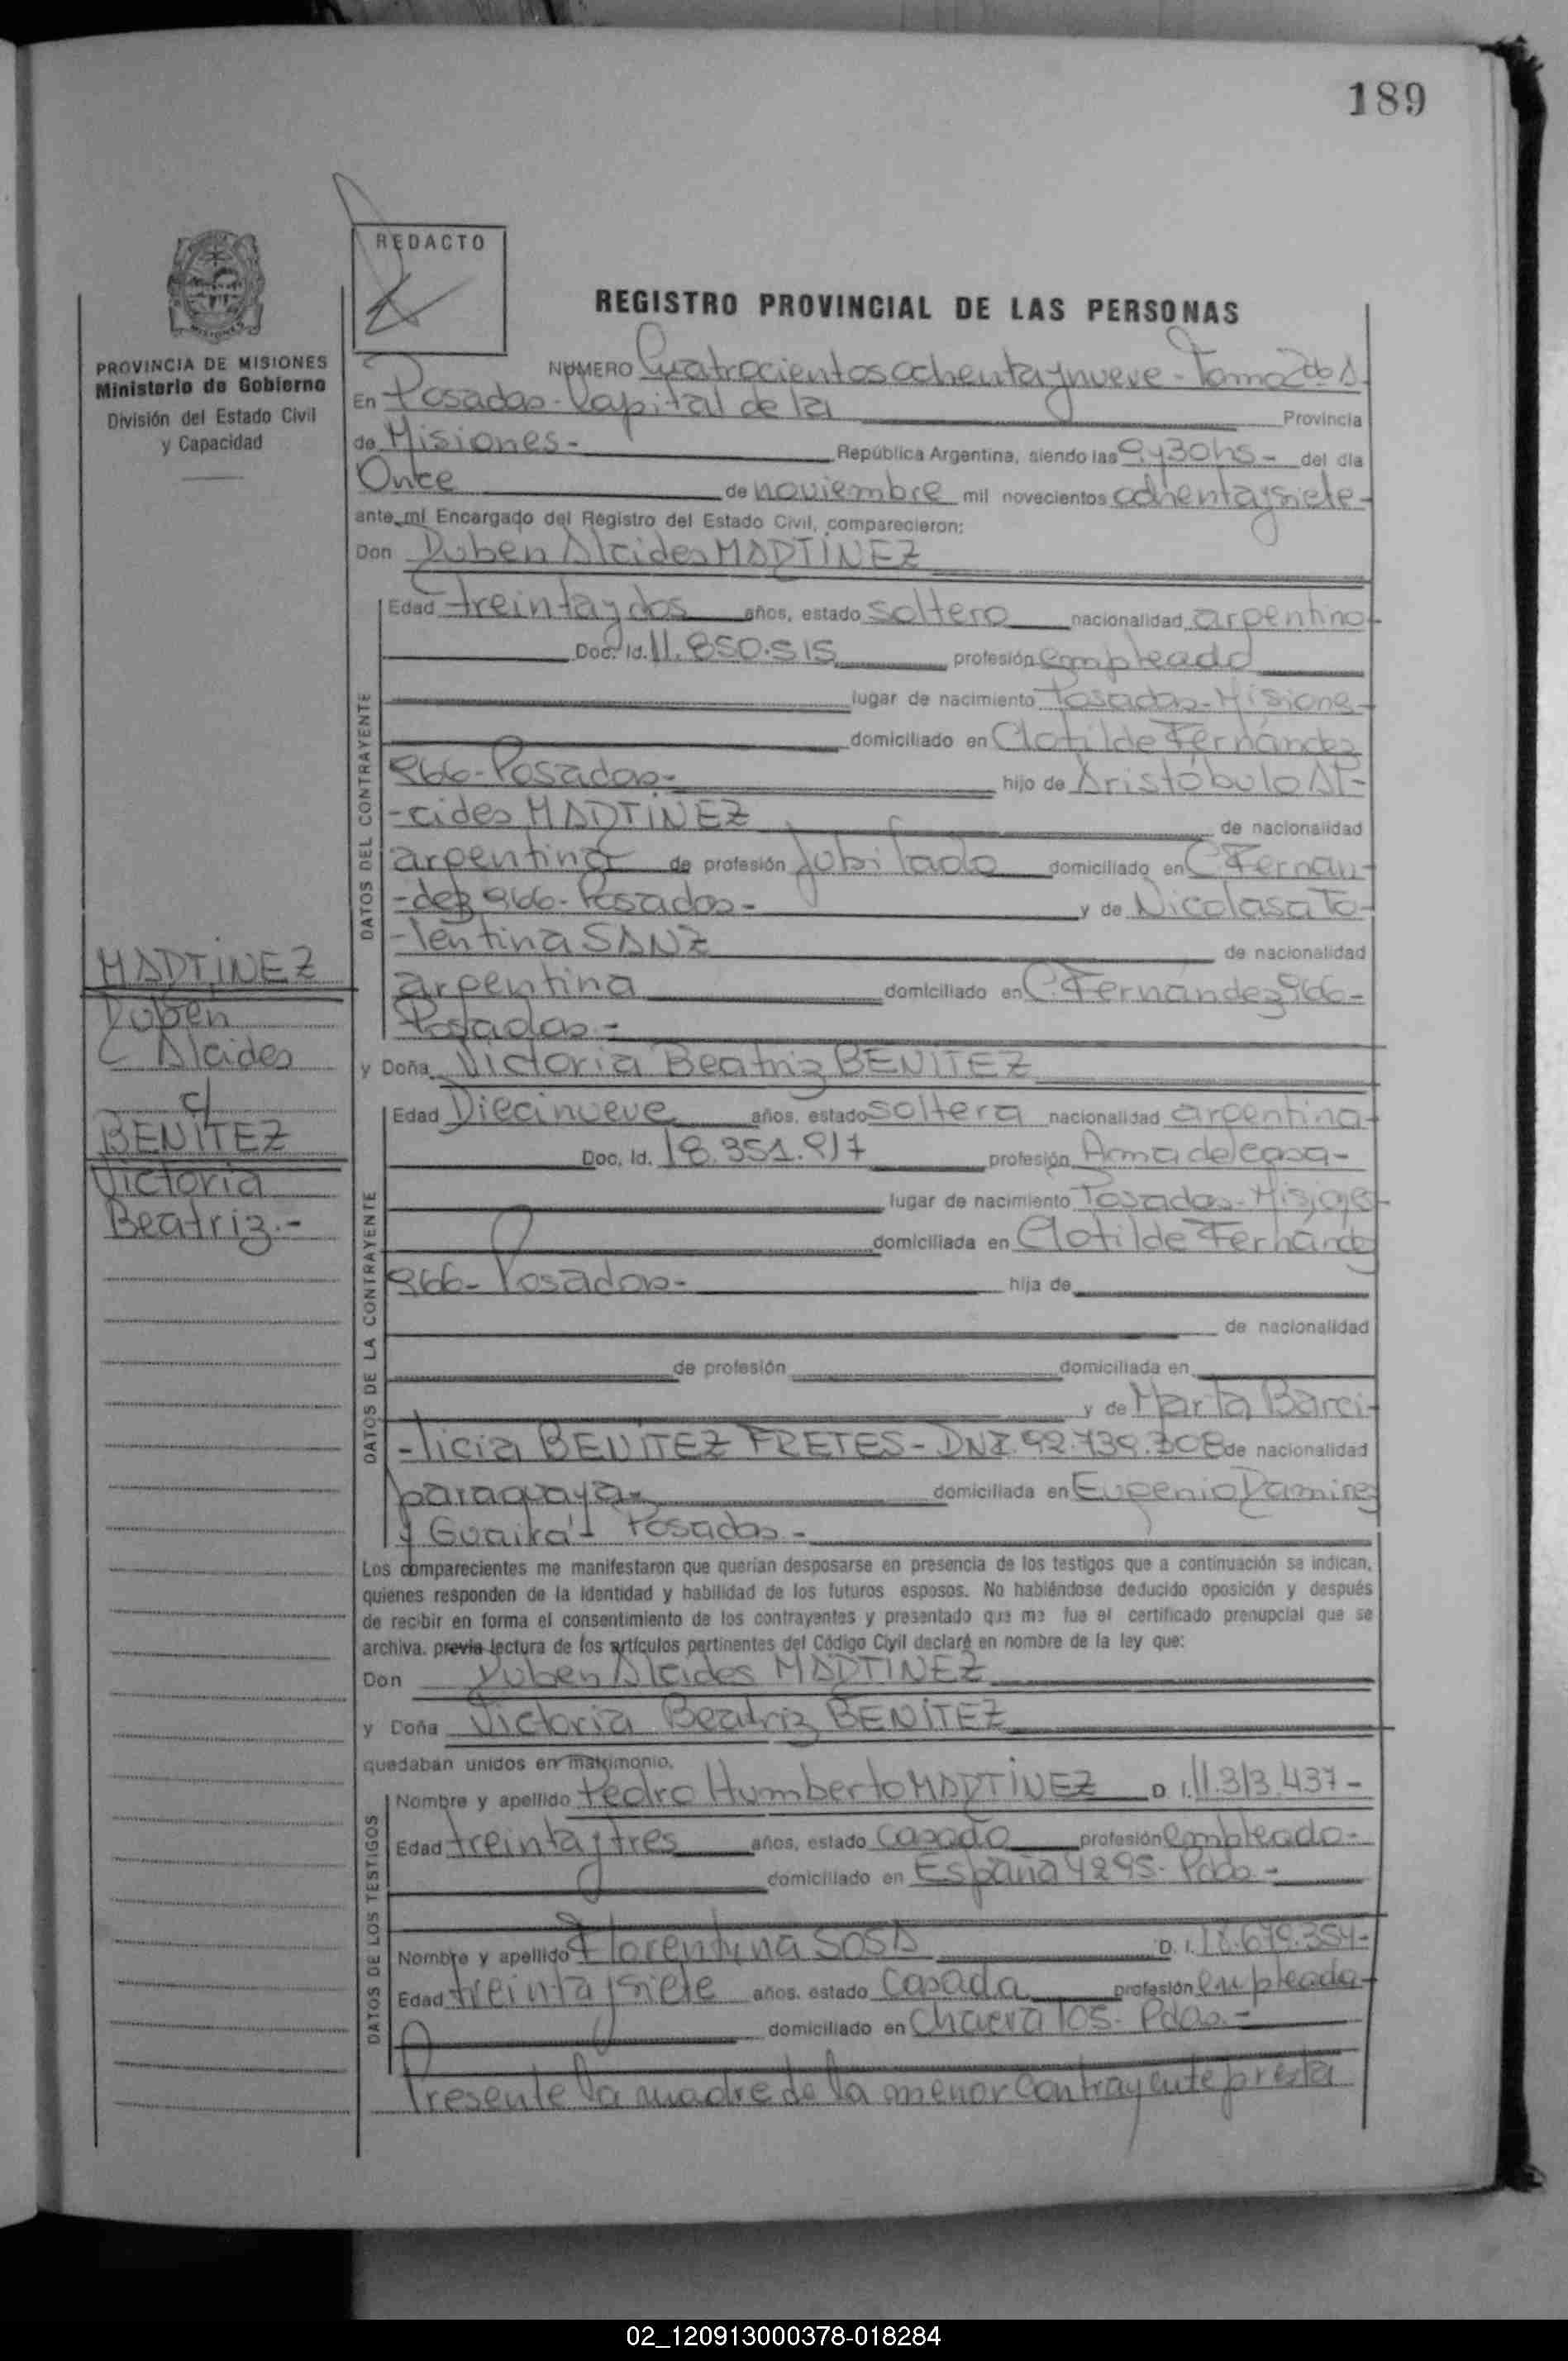 189
REDACTO
REGISTRO PROVINCIAL DE LAS PERSONAS
PROVINCIA DE MISIONES
Ministerio de Gobierno
División del Estado Civil
y Capacidad
NUMERO Cuatrocientos ochenta y nueve - Tomo 2do A
En Posadas - Capital de la Provincia
de Misiones - República Argentina, siendo las 9 y 30 hs - del día
Once de noviembre mil novecientos ochenta y siete -
ante mí Encargado del Registro del Estado Civil, comparecieron:
Don Ruben Alcides MARTINEZ
DATOS DEL CONTRAYENTE
Edad treinta y dos años, estado soltero nacionalidad argentino
Doc. Id. 11.850.515 profesión empleado
lugar de nacimiento Posadas - Misiones
domiciliado en Clotilde Fernández
966 - Posadas - hijo de Aristóbulo Al-
-cides MARTINEZ de nacionalidad
argentina de profesión Jubilado domiciliado en C. Fernan-
-dez 966 - Posadas - y de Nicolasa
-lentina SANZ de nacionalidad
argentina domiciliado en C. Fernandez 966 -
Posadas -
y Doña Victoria Beatriz BENITEZ
DATOS DE LA CONTRAYENTE
Edad Diecinueve años, estado soltera nacionalidad argentina -
Doc. Id. 18.351.917 profesión Ama de casa -
lugar de nacimiento Posadas - Misiones
domiciliada en Clotilde Fernández
966 - Posadas - hija de
de nacionalidad
de profesión domiciliada en
y de Marta Barci-
-licia BENITEZ FRETES - DNI. 92.739.308 de nacionalidad
paraguaya - domiciliada en Eugenio Ramirez
y Guaira - Posadas -
MARTINEZ
Ruben
Alcides
c/
BENITEZ
Victoria
Beatriz.-
Los comparecientes me manifestaron que querían desposarse en presencia de los testigos que a continuación se indican,
quienes responden de la identidad y habilidad de los futuros esposos. No habiéndose deducido oposición y después
de recibir en forma el consentimiento de los contrayentes y presentado que me fue el certificado prenupcial que se
archiva. previa lectura de los artículos pertinentes del Código Civil declaré en nombre de la ley que:
Don Ruben Alcides MARTINEZ
y Doña Victoria Beatriz BENITEZ
quedaban unidos en matrimonio.
DATOS DE LOS TESTIGOS
Nombre y apellido Pedro Humberto MARTINEZ D. I. 11.313.437 -
Edad treinta y tres años, estado casado profesión empleado -
domiciliado en España 4295 - Pdas -
Nombre y apellido Florentina SOSA D. I. 18.679.354 -
Edad treinta y siete años, estado casada profesión empleada -
domiciliado en 105 - Pdas. -
Presente la madre de la menor contrayente presta
02_120913000378-018284